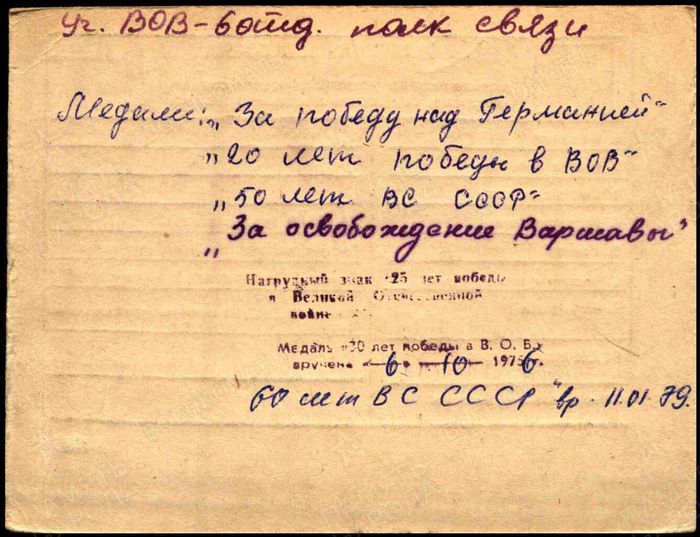 Уч. ВОВ - 6 отд. полк связи
Медали: „За победу над Германией"
„20 лет победы в ВОВ"
„50 лет ВС СССР"
„За освобождение Варшавы"
Нагрудный знак «25 лет победы
в Великой Отечественной
войне
Медаль «30 лет победы в В. О. В.»
вручена « 6 » 10 1976 г.
60 лет ВС СССР" вр. 11.01.79.